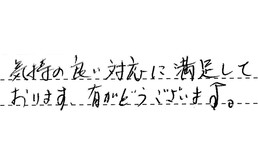 気持の良い対応に満足して
おります。有がとうございます。